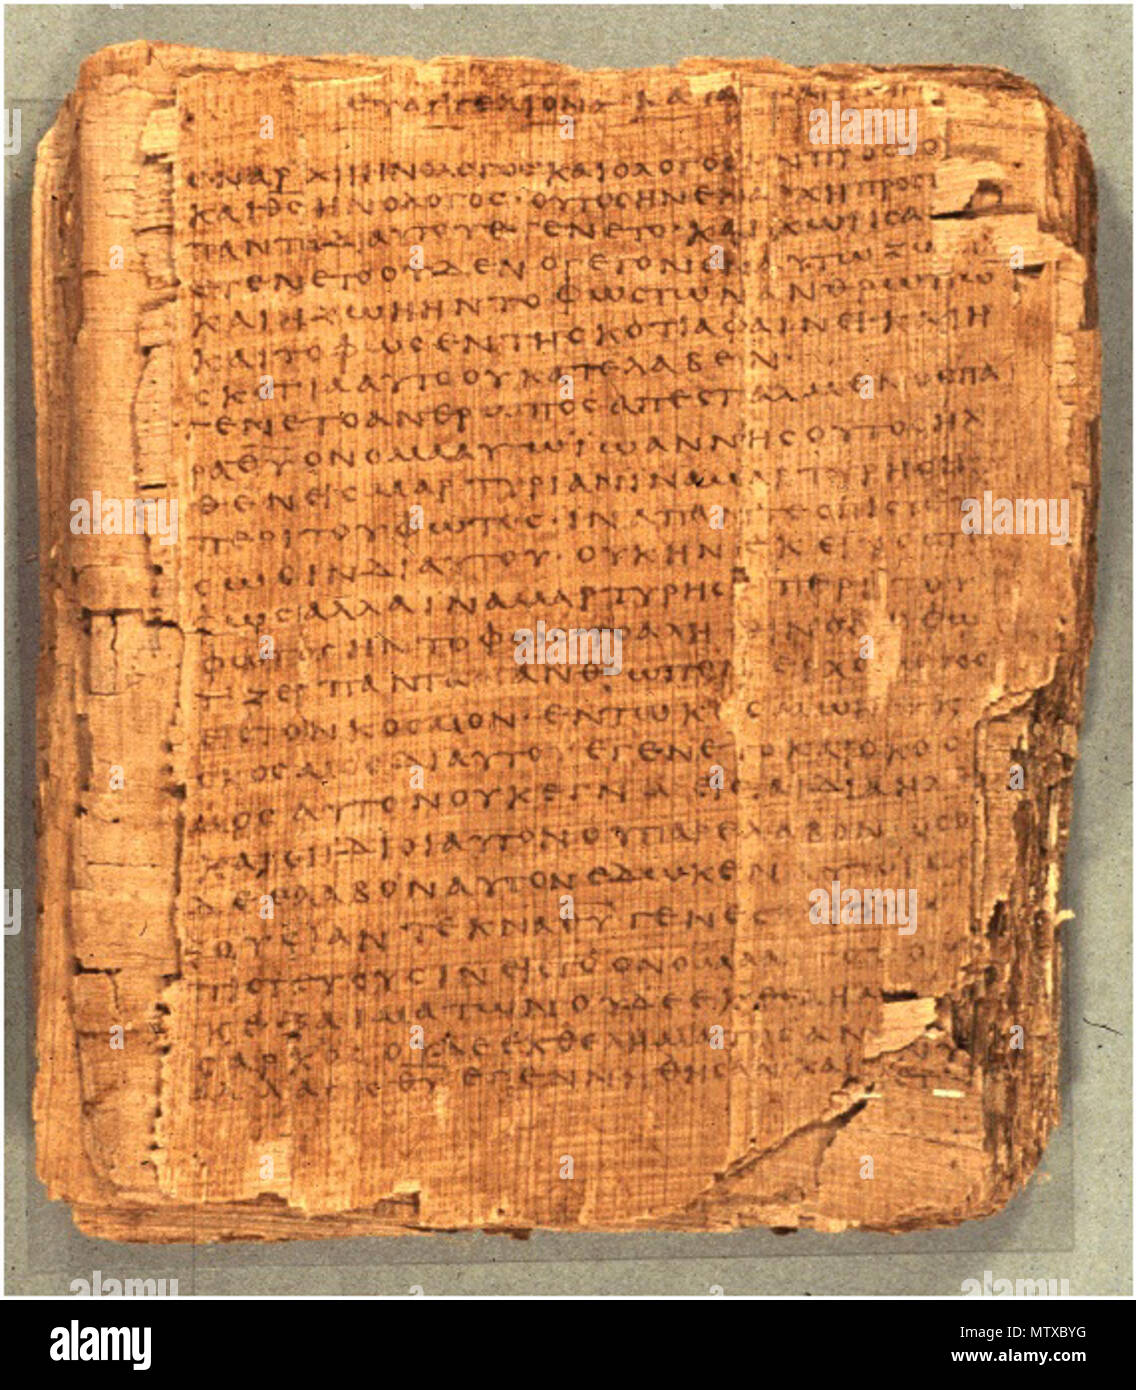 ⲈΥΑΓΓΕΛΙΟΝ ΚΑΤΑ
ΕΝΑΡΧΗΗΝΟΛΟΓΟϹΚΑΙΟΛΟΓΟϹΗΝΠΡΟϹΤΟ
ΚΑΙΘ̅Ϲ̅ΗΝΟΛΟΓΟϹ·ΟΥΤΟϹΗΝΕΝΑΡΧΗΠΡΟϹΤ
ΠΑΝΤΑΔΙΑΥΤΟΥΕΓΕΝΕΤΟ·ΚΑΙΧΩΡΙϹΑ
ΕΓΕΝΕΤΟΟΥΔΕΝΟΓΕΓΟΝΕΝΕΝΑΥΤΩΖΩΗ
ΚΑΙΗΖΩΗΗΝΤΟΦΩϹΤΩΝΑΝΘΡΩΠΩ
ΚΑΙΤΟΦΩϹΕΝΤΗϹΚΟΤΙΑΦΑΙΝΕΙ·ΚΑΙΗ
ϹΚΟΤΙΑΑΥΤΟΟΥΚΑΤΕΛΑΒΕΝ·
ΓΕΝΕΤΟΑΝΘΡΩΠΟϹΑΠΕϹΤΑΛΜΕΝΟϹΠΑ
ΡΑΘ̅Υ̅ΟΝΟΜΑΑΥΤΩΙΩΑΝΝΗϹΟΥΤΟϹΗΛ
ΘΕΝΕΙϹΜΑΡΤΥΡΙΑΝΙΝΑΜΑΡΤΥΡΗϹΗ
ΠΕΡΙΤΟΥΦΩΤΟϹ·ΙΝΑΠΑΝΤΕϹΠΙϹΤΕΥ
ϹΩϹΙΝΔΙΑΥΤΟΥ·ΟΥΚΗΝΕΚΕΙΝΟϹΤΟ
ΦΩϹΑΛΛΑΙΝΑΜΑΡΤΥΡΗϹΗΠΕΡΙΤΟΥ
ΦΩΤΟϹΗΝΤΟΦΩϹΤΟΑΛΗΘΙΝΟΝΟΦΩ
ΤΙΖΕΙΠΑΝΤΑΑΝΘΡΩΠΟΝΕΡΧΟΜΕΝΟΝ
ΕΙϹΤΟΝΚΟϹΜΟΝ·ΕΝΤΩΚΟϹΜΩΗΝ
ΚΟϹΜΟϹΔΙΑΥΤΟΥΕΓΕΝΕΤΟΚΑΙΟΚΟϹ
ΜΟϹΑΥΤΟΝΟΥΚΕΓΝΩΕΙϹΤΑΙΔΙΑΗΛΘ
ΚΑΙΟΙΙΔΙΟΙΑΥΤΟΝΟΥΠΑΡΕΛΑΒΟΝ·ΟϹΟ
ΔΕΕΛΑΒΟΝΑΥΤΟΝΕΔΩΚΕΝΑΥΤΟΙϹΕ
ΞΟΥϹΙΑΝΤΕΚΝΑΘ̅Υ̅ΓΕΝΕϹ
ΠΙϹΤΕΥΟΥϹΙΝΕΙϹΤΟΟΝΟΜΑΑΥΤΟΥΟΥ
ΚΕΞΑΙΜΑΤΩΝΟΥΔΕΕΚΘΕΛΗΜΑ
ϹΑΡΚΟϹΟΥΔΕΕΚΘΕΛΗΜΑΤΟϹΑΝ
ΑΛΛΑΕΚΘ̅Υ̅ΕΓΕΝΝΗΘΗϹΑΝ·ΚΑΙ
alamy
MTXBYG
www.alamy.com